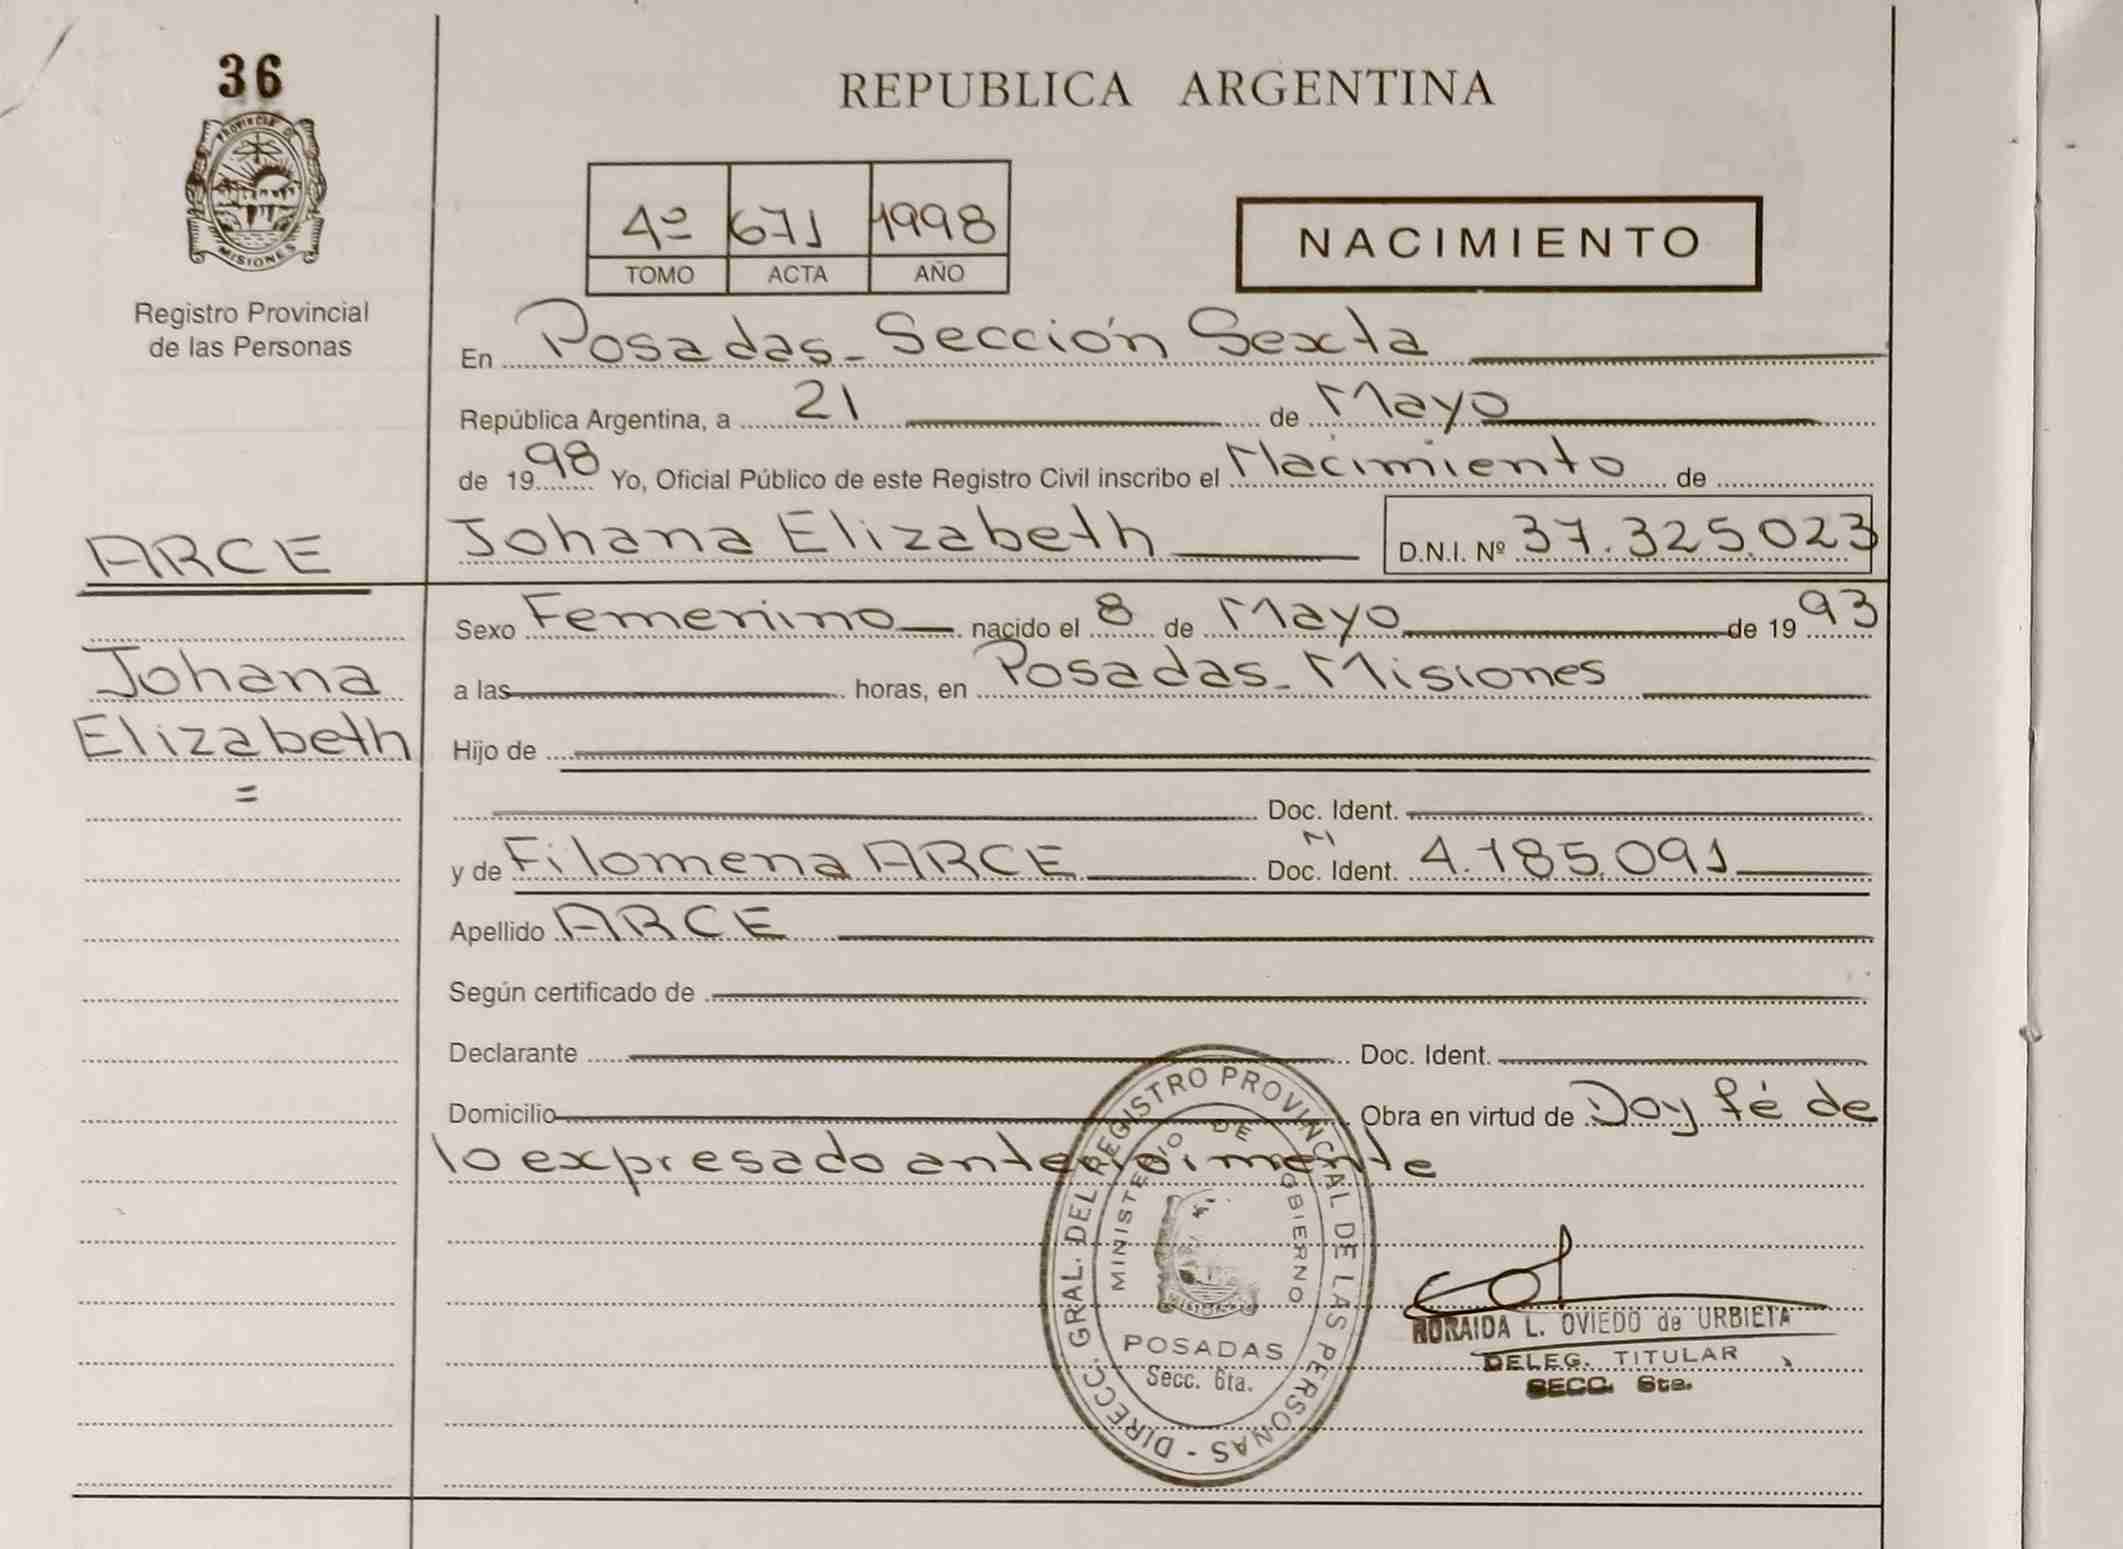 36
PROVINCIA DE
MISIONES
Registro Provincial
de las Personas
REPUBLICA ARGENTINA
4º 671 1998
TOMO ACTA AÑO
NACIMIENTO
En Posadas - Sección Sexta
República Argentina, a 21 de Mayo
de 1998 Yo, Oficial Público de este Registro Civil inscribo el Nacimiento de
Johana Elizabeth D.N.I. Nº 37.325.023
ARCE
Sexo Femenino nacido el 8 de Mayo de 1993
Johana
a las horas, en Posadas - Misiones
Elizabeth
Hijo de
=
Doc. Ident.
y de Filomena ARCE Doc. Ident. 4.185.091
Apellido ARCE
Según certificado de
Declarante Doc. Ident.
Domicilio Obra en virtud de Doy fé de
lo expresado anteriormente
DIRECC. GRAL. DEL REGISTRO PROVINCIAL DE LAS PERSONAS -
MINISTERIO DE GOBIERNO
MISIONES
POSADAS
Secc. 6ta.
NORAIDA L. OVIEDO de URBIETA
DELEG. TITULAR
SECC. 6ta.